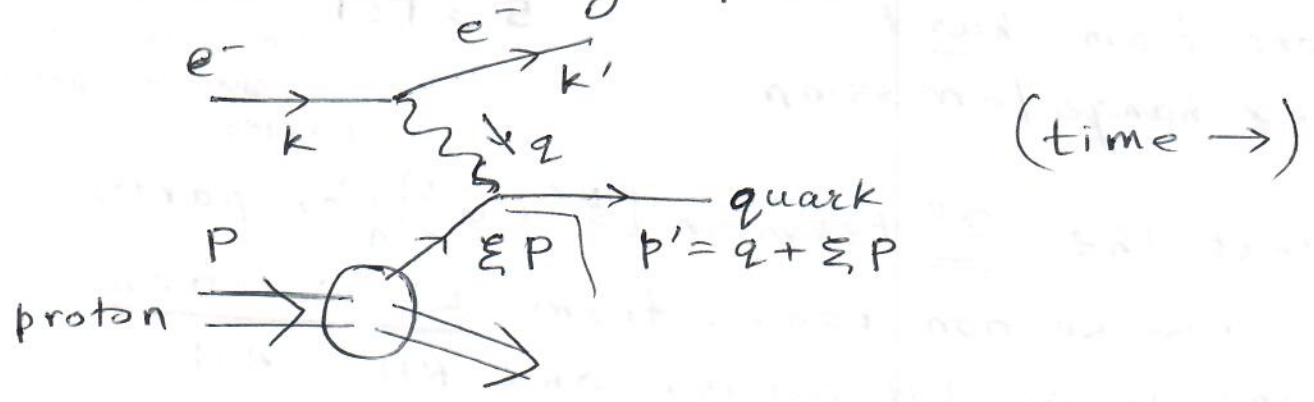 e⁻
e⁻
k'
k
(time →)
q
quark
P
ξP
p' = q + ξP
proton